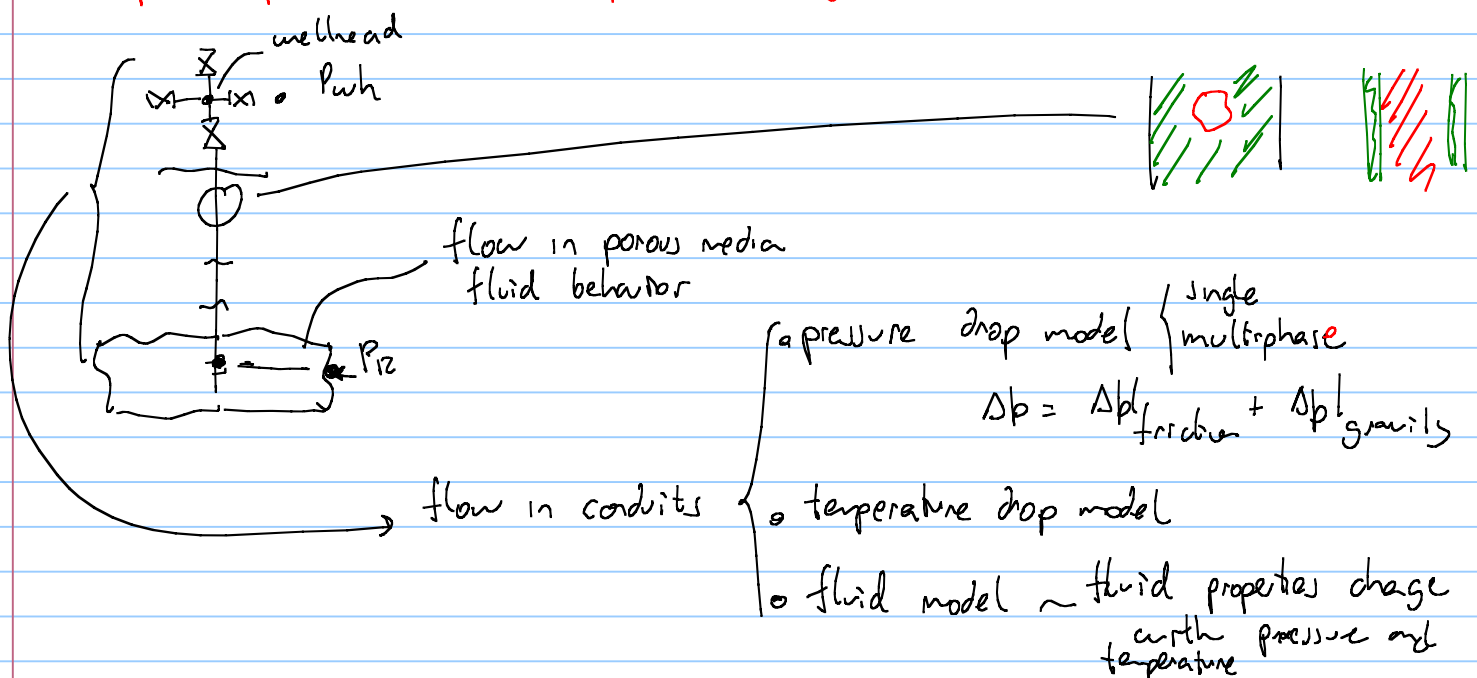 wellhead
Pwh
flow in porous media
fluid behavior
PR
pressure drop model { single
multiphase
Δp = Δp|friction + Δp|gravity
flow in conduits
• temperature drop model
• fluid model ~ fluid properties change
with pressure and
temperature